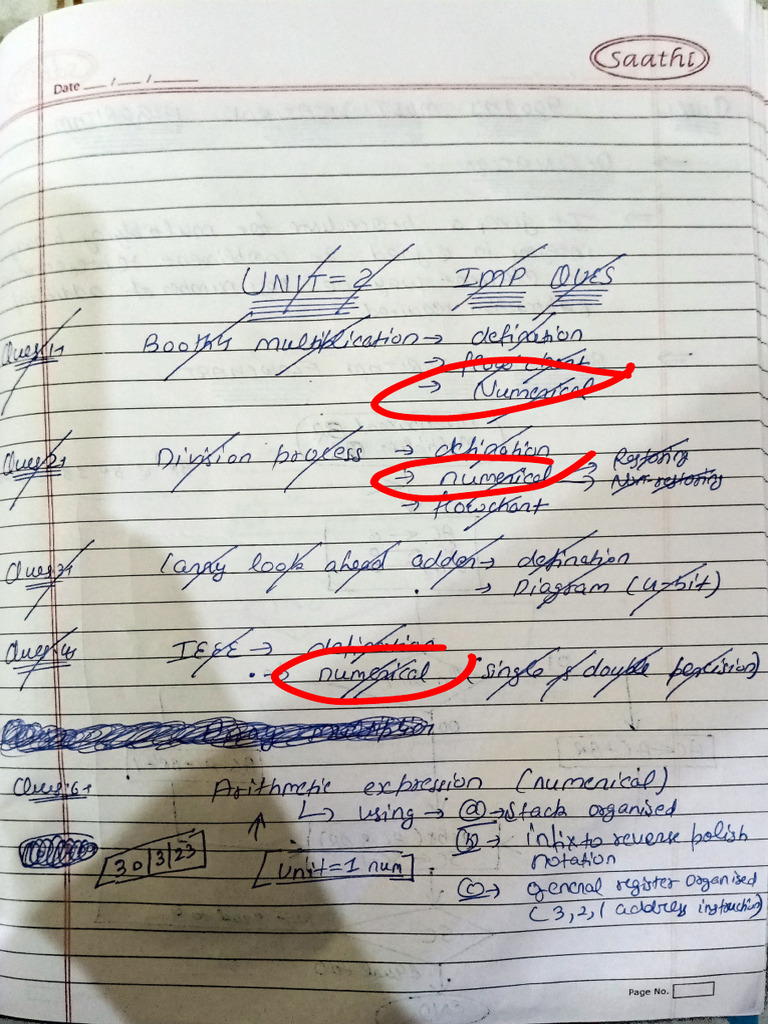 Saathi
Date __/__/____
UNIT = 2 IMP QUES
Ques 1→ Booth's multiplication → defination
→ flow chart
→ Numerical
Ques 2→ Division process → defination
→ numerical → Restoring
→ Non-restoring
→ flowchart
Ques 3→ Carry look ahead adder → defination
→ Diagram (4-bit)
Ques 4→ IEEE → defination
→ numerical (single & double percision)
Ques 6→ Arithmetic expression (numerical)
↳ using → (a) → Stack organised
(b) → infix to reverse polish
notation
30/3/23
Unit = 1 num
(c) → general register organised
(3,2,1 address instruction)
Page No.